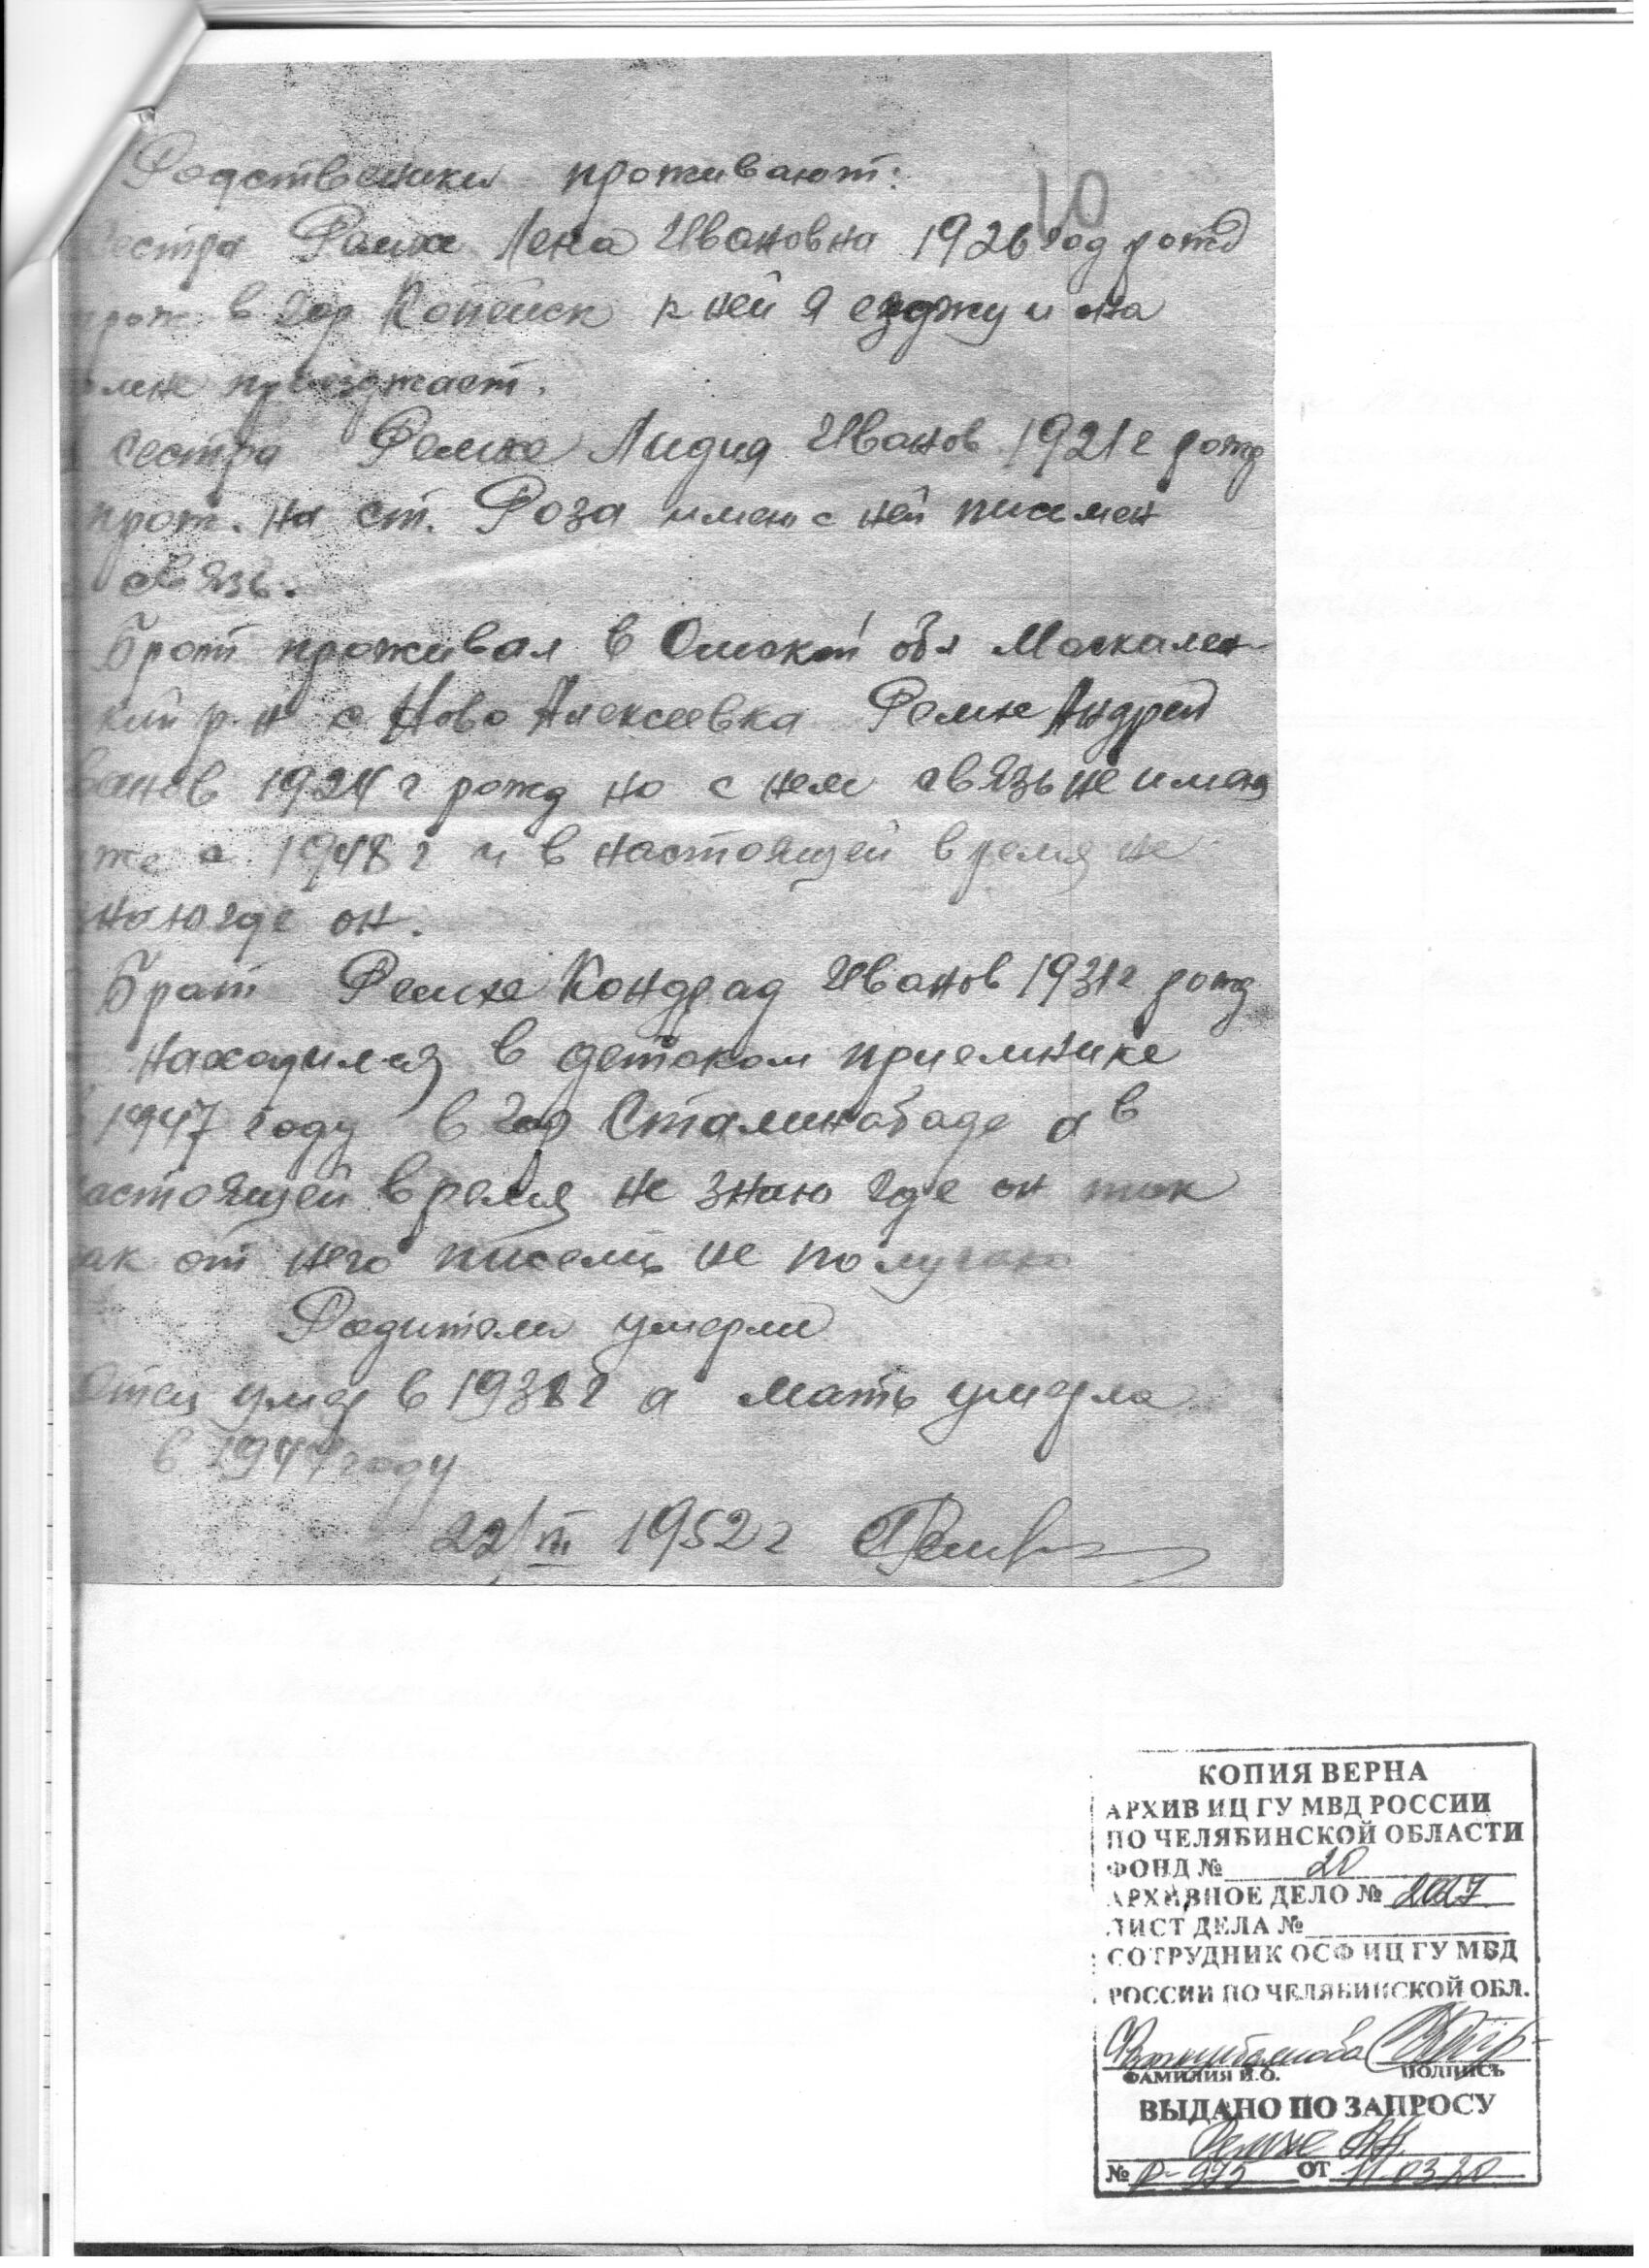 10
Родственики проживают:
Сестра Ремхе Лена Ивановна 1926 год рожд
прож. в гор Копейск к ней я езджу и она
мне приезжает.
сестра Ремхе Лидия Иванов 1921 г рожд
прож. на ст. Роза имею с ней письмен
связь.
Брат проживал в Омской обл Москален-
кий р-н с Ново Алексеевка Ремхе Андрей
ванов 1924 г рожд но с нем связь не имею
же с 1948 г и в настоящей время не
наю где он.
Брат Ремхе Кондрад Иванов 1931 г рожд
находился в детском приемнике
1947 году в гор Сталинабаде а в
астоящей время не знаю где он так
ак от него писем не получаю
Родители умерли
Отец умер в 1938 г а мать умерла
в 1944 году
22/III 1952 г
КОПИЯ ВЕРНА
АРХИВ ИЦ ГУ МВД РОССИИ
ПО ЧЕЛЯБИНСКОЙ ОБЛАСТИ
ФОНД № 20
АРХИВНОЕ ДЕЛО № 2027
ЛИСТ ДЕЛА №
СОТРУДНИК ОСФ ИЦ ГУ МВД
РОССИИ ПО ЧЕЛЯБИНСКОЙ ОБЛ.
ФАМИЛИЯ И.О. ПОДПИСЬ
ВЫДАНО ПО ЗАПРОСУ
Ремхе
№ Р-975 ОТ 11.03.20